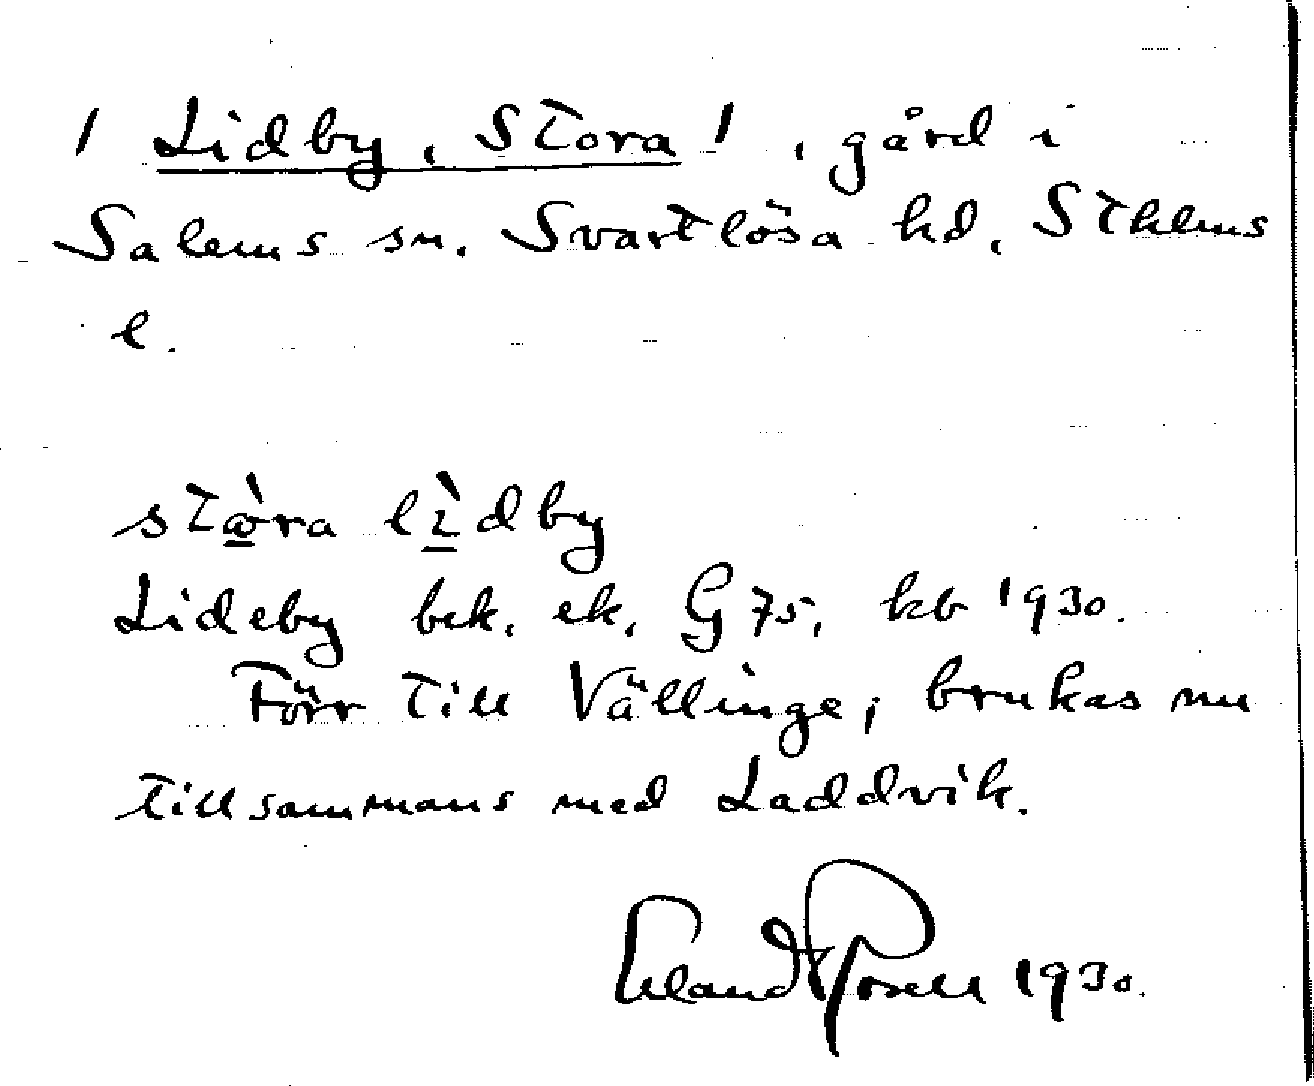 / Lidby, Stora /, gård i
Salems sn. Svartlösa hd, Sthlms
l.
stὼra lìdby
Lideby bek. ek. G 75, kb 1930.
Förr till Vällinge, brukas nu
tillsammans med Laddvik.
Erland Rosell 1930.